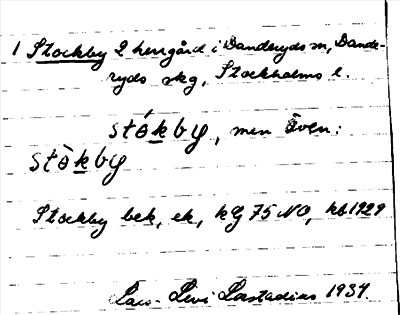 1 Stockby 2 herrgård i Danderyds sn, Dande-
ryds skg, Stockholms l.
stókby, men även:
stòkby
Stockby bek, ek, kG 75 NO, hb 1929
Lars-Levi Læstadius 1937.